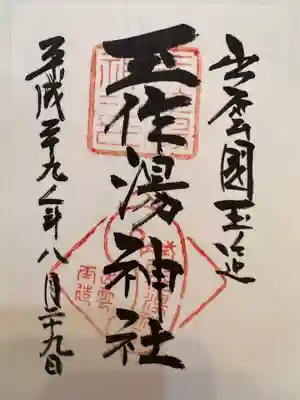 出雲國玉造
玉作湯神社
平成二十九年八月二十九日